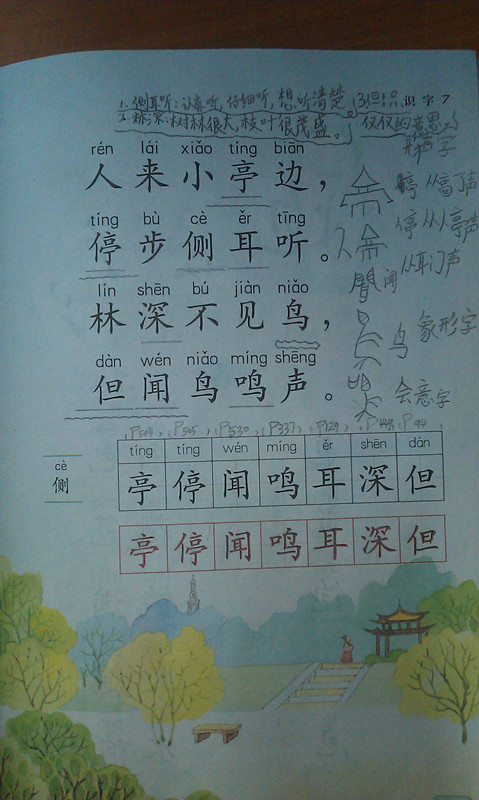 1.侧耳听：认真听，仔细听，想听清楚。
识字7
2.林深：树林很大，枝叶很茂盛。
3.但：只 仅仅的意思
形声字
rén lái xiǎo tíng biān
人来小亭边，
亭 从高丁声
tíng bù cè ěr tīng
停步侧耳听。
停 从人亭声
闻 从耳门声
lín shēn bú jiàn niǎo
林深不见鸟，
鸟 象形字
dàn wén niǎo míng shēng
但闻鸟鸣声。
会意字
P504 P505 P530 P337 P129 P94
cè
侧
tíng tíng wén míng ěr shēn dàn
亭 停 闻 鸣 耳 深 但
亭 停 闻 鸣 耳 深 但